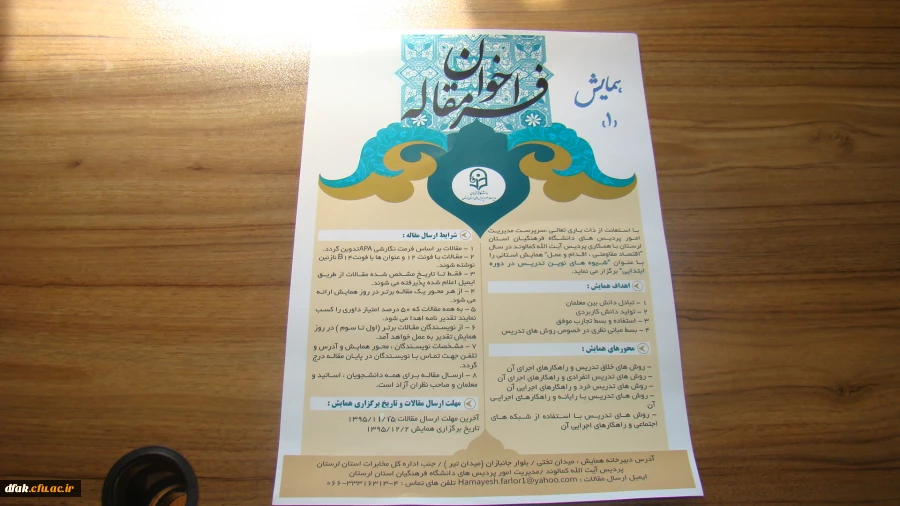 فراخوان
مقاله
همایش
(۱)
با استعانت از ذات باری تعالی، سرپرست مدیریت
امور پردیس های دانشگاه فرهنگیان استان
لرستان با همکاری پردیس آیت الله کمالوند در سال
"اقتصاد مقاومتی ، اقدام و عمل" همایش استانی را
با عنوان "شیوه های نوین تدریس در دوره
ابتدایی" برگزار می نماید.
اهداف همایش :
۱ – تبادل دانش بین معلمان
۲ – تولید دانش کاربردی
۳ – استفاده و بسط تجارب موفق
۴ – بسط مبانی نظری در خصوص روش های تدریس
محورهای همایش :
– روش های خلاق تدریس و راهکارهای اجرای آن
– روش های تدریس انفرادی و راهکارهای اجرای آن
– روش های تدریس خرد و راهکارهای اجرایی آن
– روش های تدریس با رایانه و راهکارهای اجرایی
آن
– روش های تدریس با استفاده از شبکه های
اجتماعی و راهکارهای اجرایی آن
شرایط ارسال مقاله :
۱ – مقالات بر اساس فرمت نگارشی APAتدوین گردد.
۲ – مقالات با فونت ۱۲ و عنوان ها با فونت۱۴B نازنین
نوشته شوند.
۳ – فقط تا تاریخ مشخص شده مقالات از طریق
ایمیل اعلام شده پذیرفته می شوند.
۴ – از هر محور یک مقاله برتر در روز همایش ارائه
می شود.
۵ – به همه مقالات که ۵۰ درصد امتیاز داوری را کسب
نمایند تقدیر نامه اهدا می شود.
۶ – از نویسندگان مقالات برتر (اول تا سوم ) در روز
همایش تقدیر به عمل خواهد آمد.
۷ – مشخصات نویسندگان ، محور همایش و آدرس و
تلفن جهت تماس با نویسندگان در پایان مقاله درج
گردد.
۸ – ارسال مقاله برای همه دانشجویان ، اساتید و
معلمان و صاحب نظران آزاد است.
مهلت ارسال مقالات و تاریخ برگزاری همایش :
آخرین مهلت ارسال مقالات ۱۳۹۵/۱۱/۲۵
تاریخ برگزاری همایش ۱۳۹۵/۱۲/۲
آدرس دبیرخانه همایش : میدان تختی / بلوار جانبازان (میدان تیر ) / جنب اداره کل مخابرات استان لرستان
پردیس آیت الله کمالوند /مدیریت امور پردیس های دانشگاه فرهنگیان استان لرستان
ایمیل ارسال مقالات : Hamayesh.farlor1@yahoo.com تلفن های تماس : ۴-۰۶۶-۳۳۳۱۶۳۱۳
dfak.cfu.ac.ir